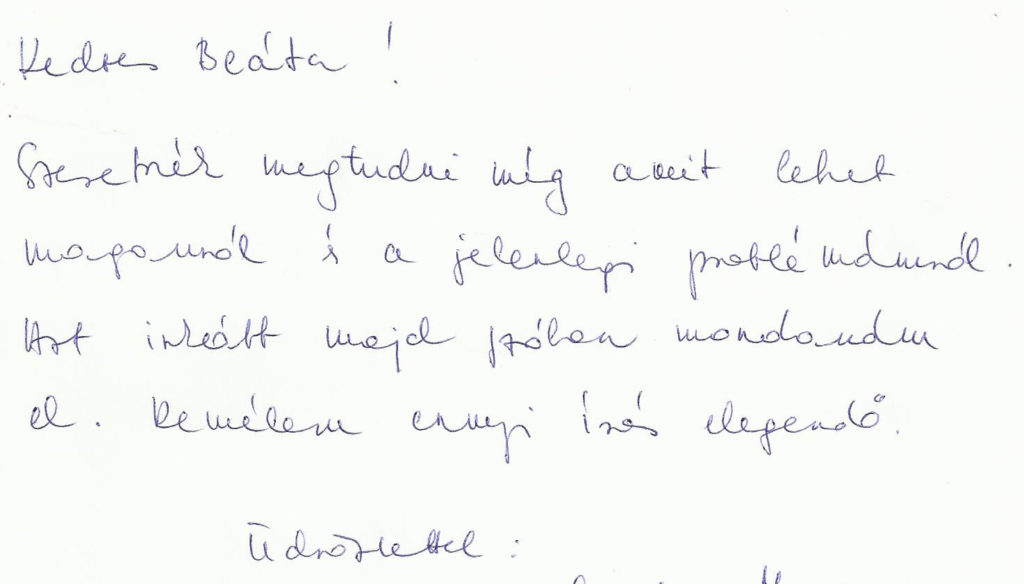 Kedves Beáta!
Szeretnék megtudni még amit lehet
magamról és a jelenlegi problémámról.
Azt inkább majd szóban mondanám
el. Remélem ennyi írás elegendő.
Üdvözlettel: